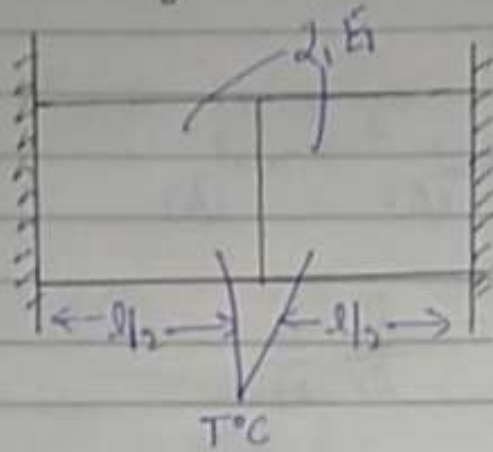 α, E
l/2 l/2
T°C